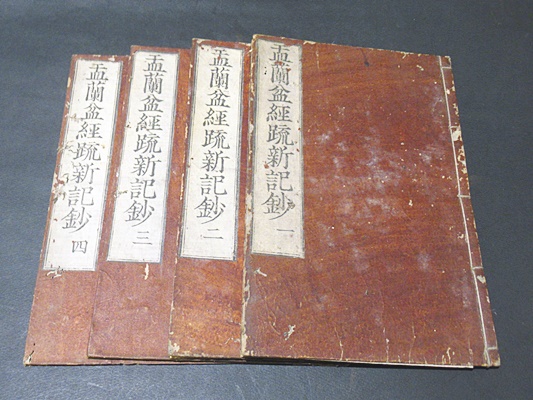 盂蘭盆經疏新記鈔 一
盂蘭盆經疏新記鈔 二
盂蘭盆經疏新記鈔 三
盂蘭盆經疏新記鈔 四